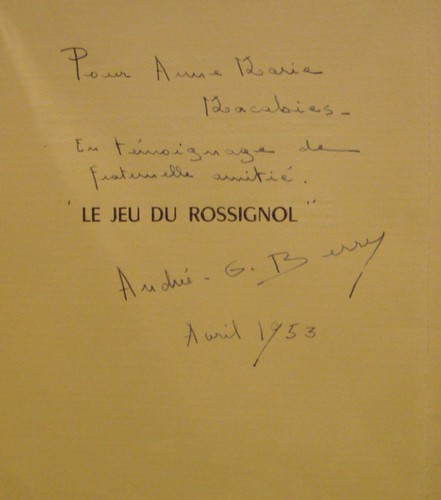 Pour Anne Marie
Macabies -
En témoignage de
fraternelle amitié.
" LE JEU DU ROSSIGNOL "
André - G. Berry
Avril 1953